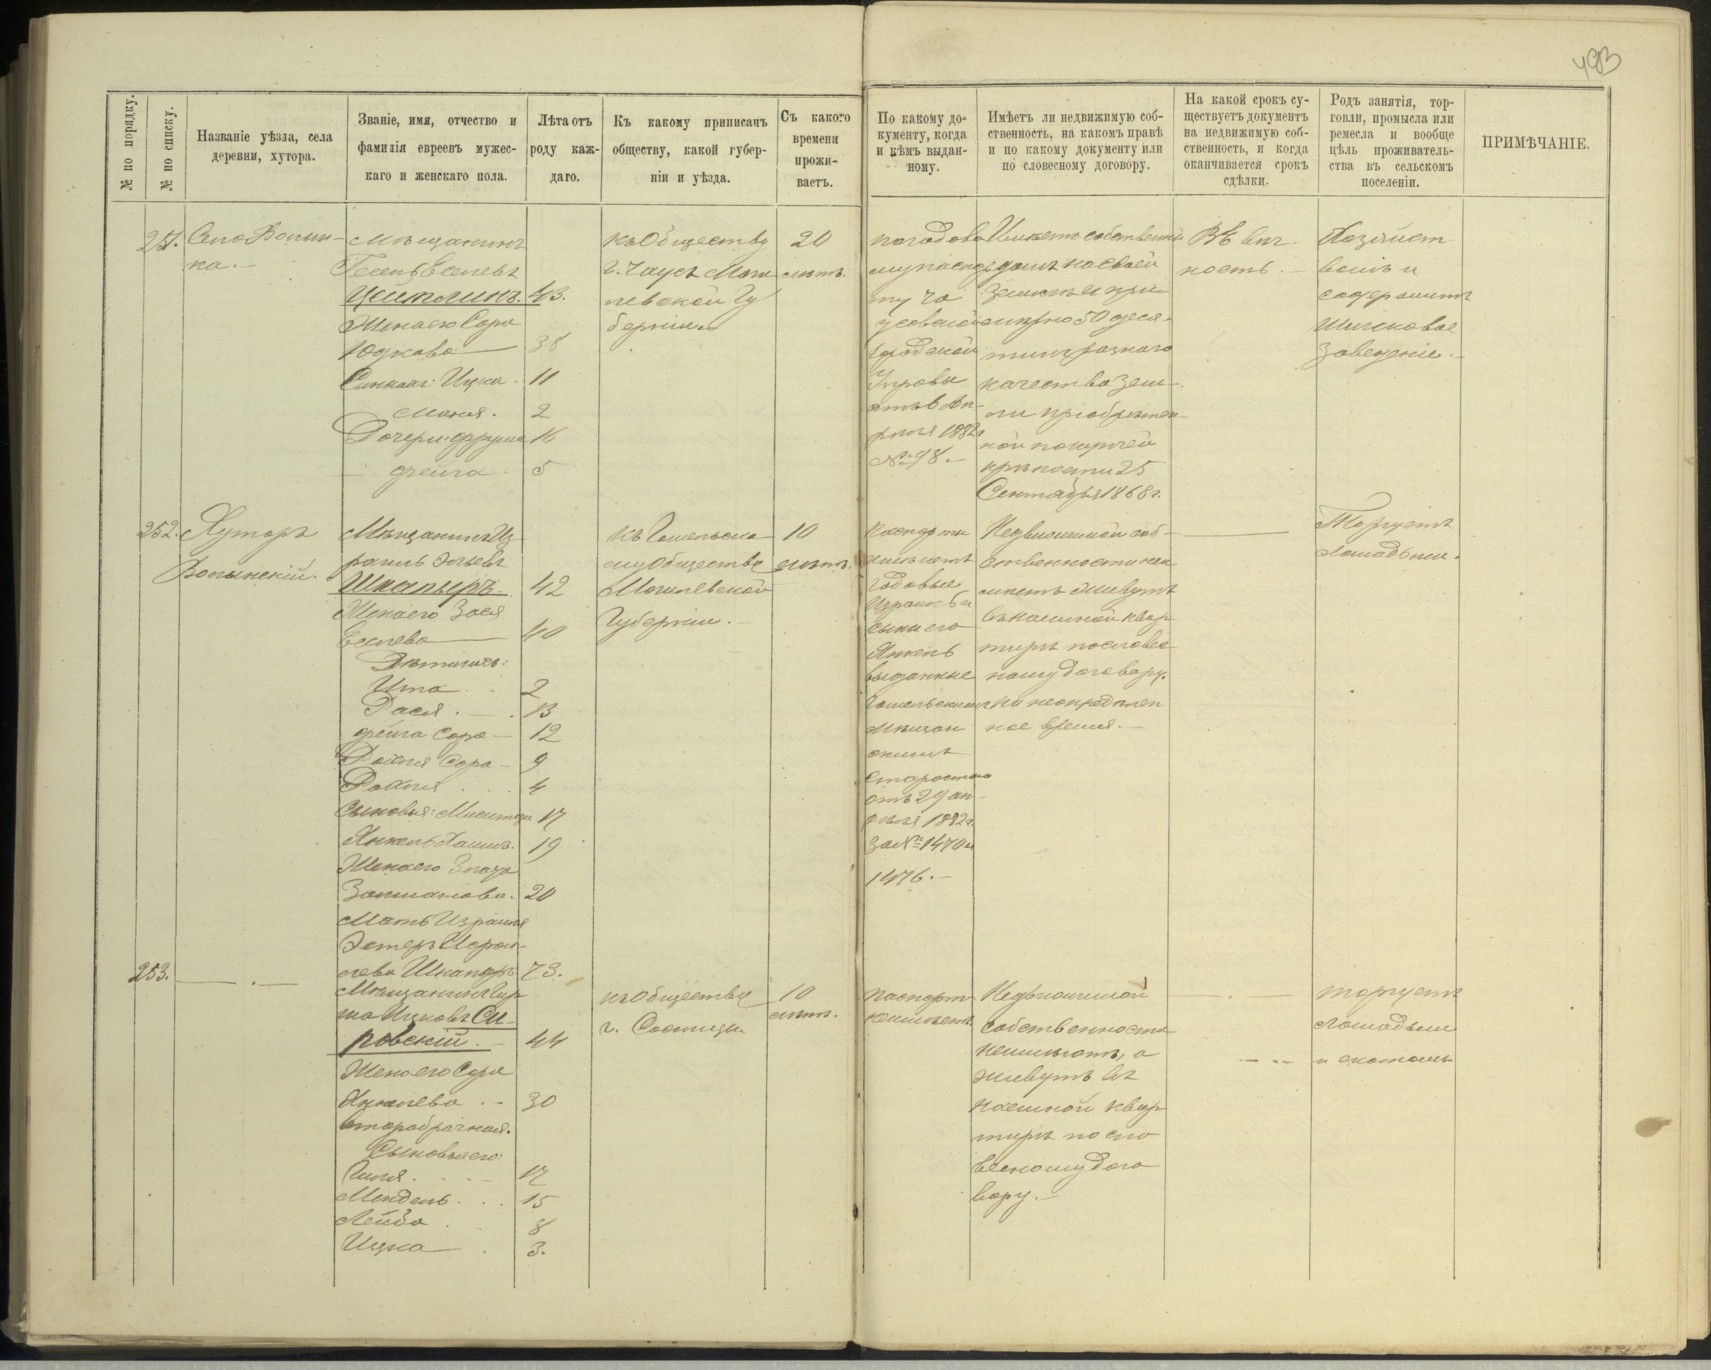 493
№ по порядку.
№ по списку.
Названіе уѣзда, села
деревни, хутора.
Званіе, имя, отчество и
фамилія евреевъ мужес-
каго и женскаго пола.
Лѣта отъ
роду каж-
даго.
Къ какому приписанъ
обществу, какой губер-
ніи и уѣзда.
Съ какого
времени
прожи-
ваетъ.
По какому до-
кументу, когда
и кѣмъ выдан-
ному.
Имѣетъ ли недвижимую соб-
ственность, на какомъ правѣ
и по какому документу или
по словесному договору.
На какой срокъ су-
ществуетъ документъ
на недвижимую соб-
ственность, и когда
оканчивается срокъ
сдѣлки.
Родъ занятія, тор-
говли, промысла или
ремесла и вообще
цѣль проживатель-
ства въ сельскомъ
поселеніи.
ПРИМѢЧАНІЕ.
251.
Село Волын-
ка.
Мѣщанинъ
Цейтлинъ. 43.
Жена его Сора
Юдкова 38
Ицка. 11
2
Дочери: Фрума 16
Фейга. 5
къ Обществу
г. Чаусъ Моги
левской Гу
берніи.
20
лѣтъ.
погодово
му паспор
ту Ча
усовской
Городской
Управы
отъ 6 Ап-
рѣля 1882г
№ 98.
Имѣетъ собственный
домъ на своей
землѣ и при
ономъ 50 деся-
тинъ разнаго
качества зем-
ли пріобрѣтен-
ной по купчей
крѣпости 25
Сентября 1868г.
Въ вѣч
ность.
Хозяйст
вомъ и
содержитъ
Шинковое
заведеніе.
252.
Хуторъ
Волынскій.
Мѣщанинъ Из
раиль
Шкапыръ. 42
Жена его Хася
40
Дѣти ихъ:
Ита 2
Хася 13
Фейга Сора 12
Сора 9
4
Сыновья: 17
Янкель Хаимъ. 19
Жена его Злата
20
Мать Израиля
Эстеръ Израи-
лева Шкапыръ 73.
къ Гомельско
му Обществу
Могилевской
Губерніи.
10
лѣтъ.
Паспорты
имѣютъ
Годовые
Израиль и
сынъ его
Янкель
выданные
Гомельскимъ
Мѣщан
скимъ
Старостою
отъ 29 ап-
рѣля 1882г.
за № 1470 и
1476.
Недвижимой соб-
ственности не и
мѣетъ живутъ
въ наемной квар
тирѣ по словес-
ному договору.
на неопредѣлен
ное время.
Торгуетъ
Лошадьми.
253.
Мѣщанинъ Гир
ша Ицковъ Си-
ровскій. 44
Жена его Сора
Янкелева 30
второбрачная.
Сыновья его:
Гиля 17
Мендель 15
Лейба 8
Ицка 3.
къ Обществу
г. Сосницы.
10
лѣтъ.
Паспорта
неимѣетъ
Недвижимой
собственности
неимѣютъ, а
живутъ въ
наемной квар
тирѣ по сло
весному дого
вору.
торгуетъ
лошадьми
и скотомъ